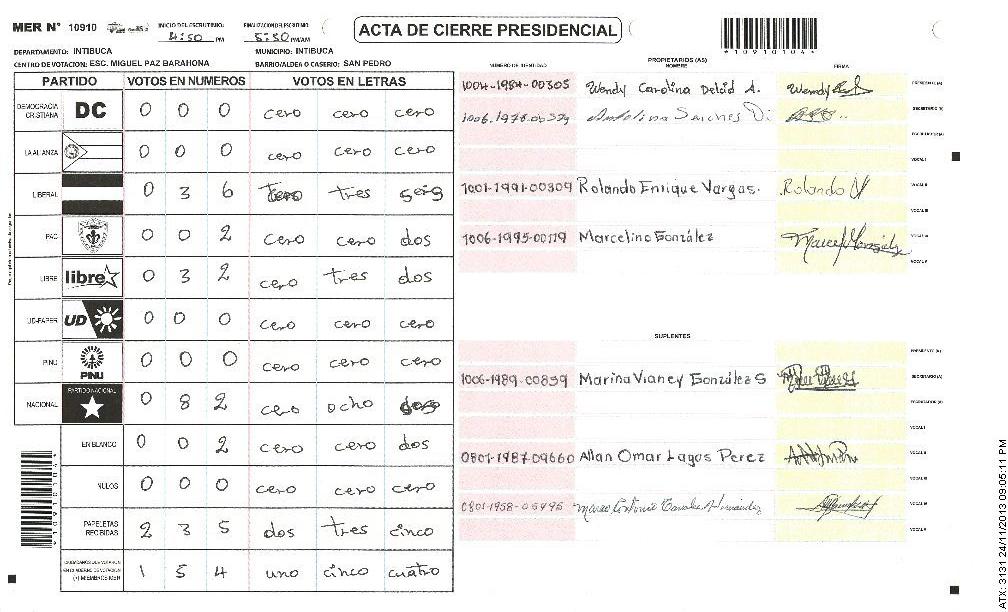 MER N° 10910
INICIO DEL ESCRUTINIO: 4:50 PM
FINALIZACION DEL ESCRUTINIO: 5:50 PM/AM
ACTA DE CIERRE PRESIDENCIAL
*10910104*
DEPARTAMENTO: INTIBUCA MUNICIPIO: INTIBUCA
CENTRO DE VOTACION: ESC. MIGUEL PAZ BARAHONA BARRIO/ALDEA O CASERIO: SAN PEDRO
PARTIDO VOTOS EN NUMEROS VOTOS EN LETRAS
DEMOCRACIA CRISTIANA DC 0 0 0 cero cero cero
LA ALIANZA 0 0 0 cero cero cero
LIBERAL 0 3 6 cero tres seis
PAC 0 0 2 cero cero dos
LIBRE libre 0 3 2 cero tres dos
UD-FAPER UD 0 0 0 cero cero cero
PINU PINU 0 0 0 cero cero cero
NACIONAL PARTIDO NACIONAL 0 8 2 cero ocho dos
EN BLANCO 0 0 2 cero cero dos
NULOS 0 0 0 cero cero cero
PAPELETAS RECIBIDAS 2 3 5 dos tres cinco
CIUDADANOS QUE VOTARON EN CUADERNO DE VOTACION (+) MIEMBROS MER 1 5 4 uno cinco cuatro
PROPIETARIOS (AS)
NUMERO DE IDENTIDAD NOMBRE FIRMA
1004-1984-00305 Wendy Carolina Delcid A. Wendy PRESIDENTE (A)
SECRETARIO (A)
ESCRUTADOR (A)
VOCAL I
1001-1991-00309 Rolando Enrique Vargas. Rolando V VOCAL II
VOCAL III
1006-1995-00119 Marcelino González VOCAL IV
VOCAL V
SUPLENTES
PRESIDENTE (A)
1006-1989-00839 Marina Vianey González S SECRETARIO (A)
ESCRUTADOR (A)
VOCAL I
0801-1987-09660 Allan Omar Lagos Perez VOCAL II
VOCAL III
0801-1958-05495 Marco Antonio Hernández VOCAL IV
VOCAL V
ATX: 3131 24/11/2013 09:05:11 PM